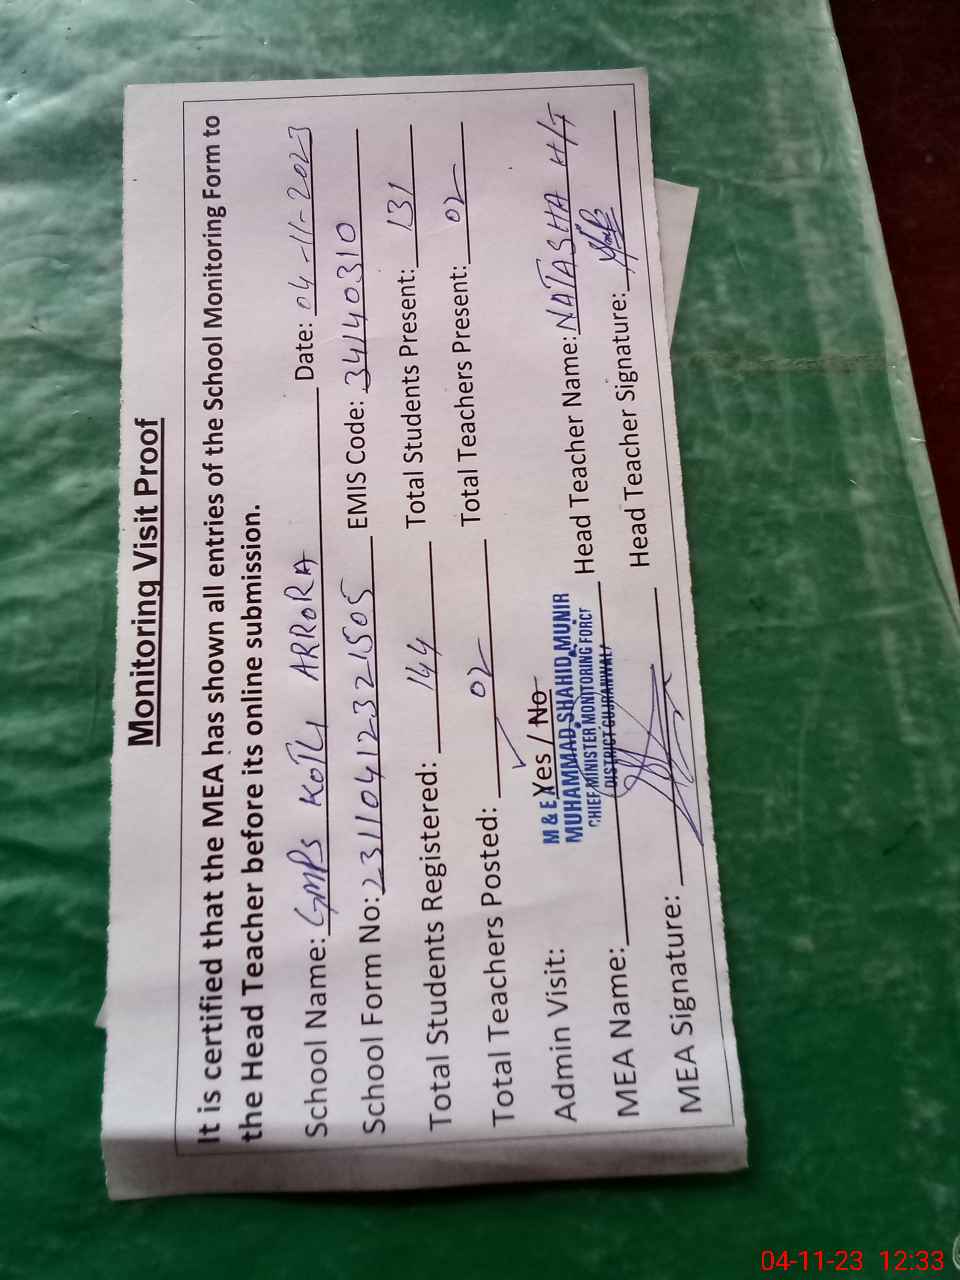 Monitoring Visit Proof
It is certified that the MEA has shown all entries of the School Monitoring Form to
the Head Teacher before its online submission.
School Name: GMPS KOTLI ARRORA Date: 04-11-2023
School Form No: 231104123221505 EMIS Code: 34140310
Total Students Registered: 144 Total Students Present: 131
Total Teachers Posted: 02 Total Teachers Present: 02
Admin Visit: Yes / No
M & EA
MUHAMMAD SHAHID MUNIR
CHIEF MINISTER MONITORING FORCE
DISTRICT GUJRANWALA
MEA Name: Head Teacher Name: NATASHA H/T
MEA Signature: Head Teacher Signature:
04-11-23 12:33